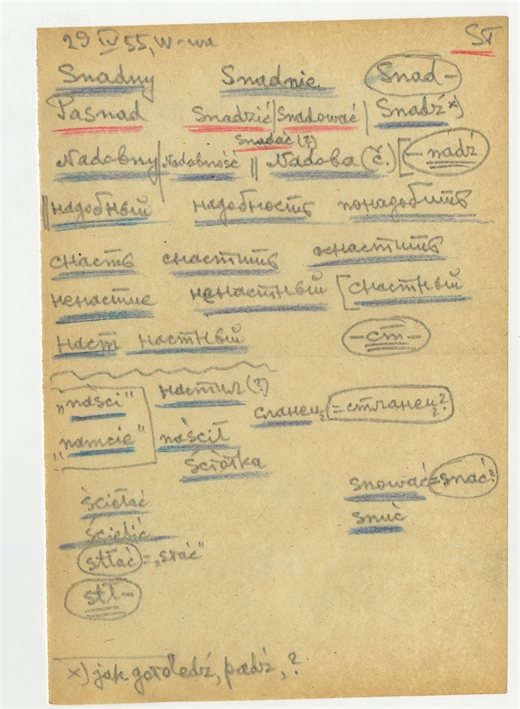 29 IV 55, W-wa ST
Snadny Snadnie Snad-
Pasnad Snadzić | Snadować | Snadź x)
Snadać (?)
Nadobny | Nadobność || Nadoba (č.) [-nadź
|| надобный надобность понадобить
снасть снастить оснастить
ненастие ненастный [снастный
наст настный -ст-
"naści" настил (?) сланец = стланец?
"namcie" naścił
Ściółka snować = snać?
ścielać snuć
ścielić
stłać = "srać"
stł-
x) jak gołoledź, pędź, ?